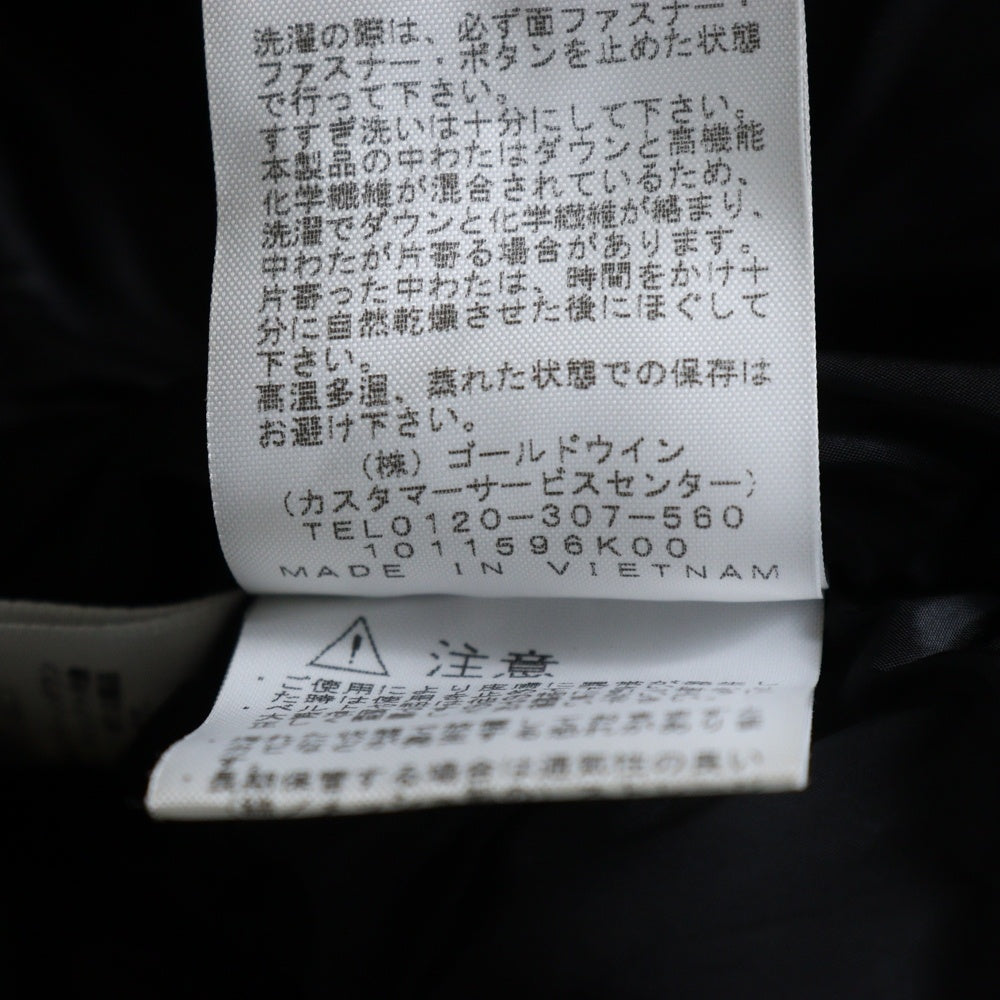 洗濯の際は、必ず面ファスナー・
ファスナー・ボタンを止めた状態
で行って下さい。
すすぎ洗いは十分にして下さい。
本製品の中わたはダウンと高機能
化学繊維が混合されているため、
洗濯でダウンと化学繊維が絡まり、
中わたが片寄る場合があります。
片寄った中わたは、時間をかけ十
分に自然乾燥させた後にほぐして
下さい。
高温多湿、蒸れた状態での保存は
お避け下さい。
(株)ゴールドウイン
(カスタマーサービスセンター)
TEL0120-307-560
1011596K00
MADE IN VIETNAM
注意
・ご使用に
・長期保管する場合は通気性の良い